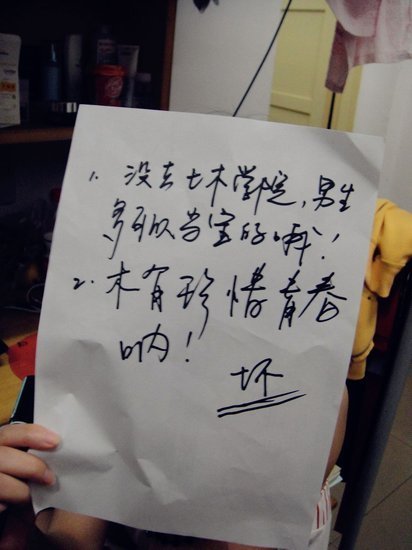 1. 没去土木学院,男生
多可以当宝的哦!
2. 木有珍惜青春
呐!
坏